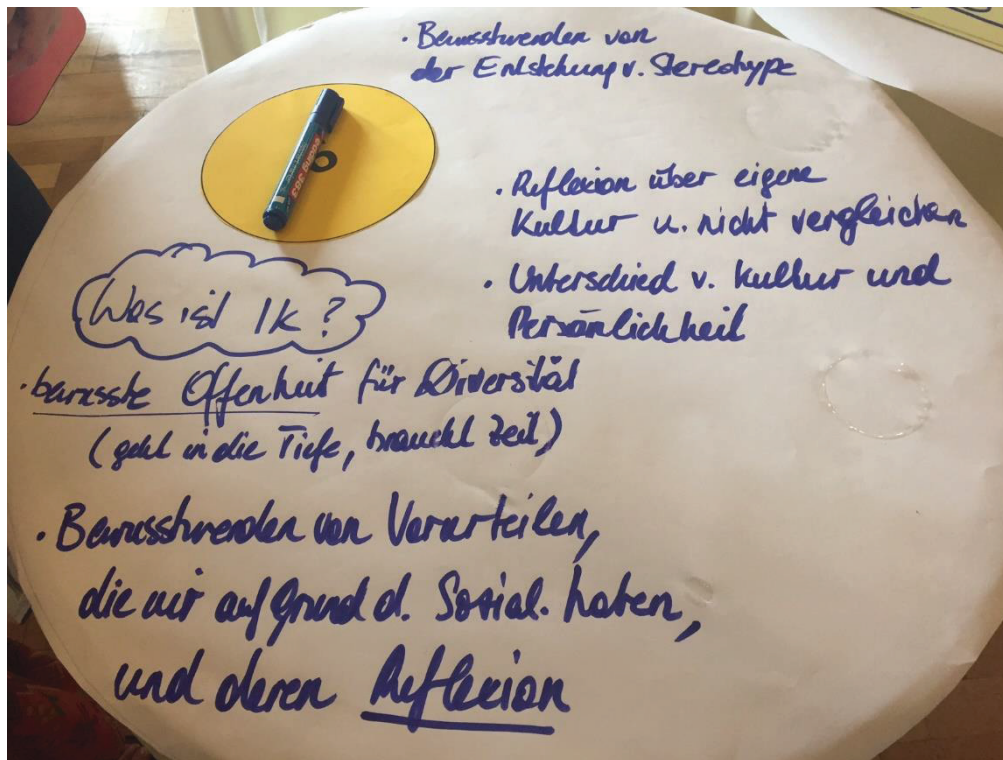 · Bewusstwerden von
der Entstehung v. Stereotype
· Reflexion über eigene
Kultur u. nicht vergleichen
· Unterschied v. Kultur und
Persönlichkeit
Was ist Ik?
· bewusste Offenheit für Diversität
(geht in die Tiefe, braucht Zeit)
· Bewusstwerden von Vorurteilen,
die wir auf Grund d. Sozial. haben,
und deren Reflexion
edding 383